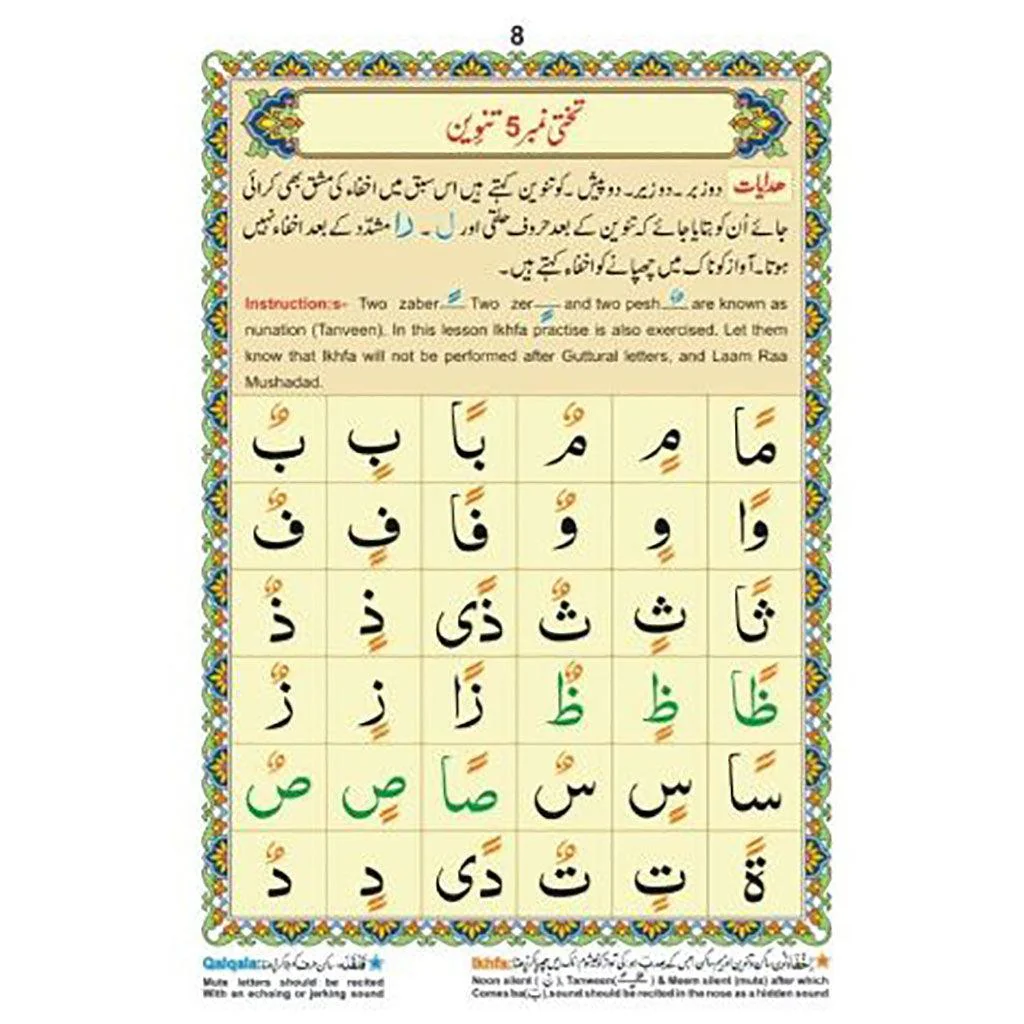 8
تختی نمبر 5 تنوین
ھدایات دو زبر۔ دو زیر۔ دو پیش ۔ کو تنوین کہتے ہیں اس سبق میں اخفاء کی مشق بھی کرائی
جائے اُن کو بتایا جائے کہ تنوین کے بعد حروف حلقی اور ل۔ را مشدّد کے بعد اخفاء نہیں
ہوتا۔ آواز کو ناک میں چھپانے کو اخفاء کہتے ہیں۔
Instruction:s- Two zaber ً Two zer ٍ and two pesh ٌ are known as
nunation (Tanveen). In this lesson Ikhfa practise is also exercised. Let them
know that Ikhfa will not be performed after Guttural letters, and Laam Raa
Mushadad.
مًا مٍ مٌ بًا بٍ بٌ
وًا وٍ وٌ فًا فٍ فٌ
ثًا ثٍ ثٌ ذًى ذٍ ذٌ
ظًا ظٍ ظٌ زًا زٍ زٌ
سًا سٍ سٌ صًا صٍ صٌ
ةً تٍ تٌ دًى دٍ دٌ
Qalqala: قلقلہ
Mute letters should be recited
With an echoing or jerking sound
Ikhfa:
Noon silent ( نْ ), Tanween( ) & Meem silent (mute) after which
Comes ba(ب), sound should be recited in the nose as a hidden sound